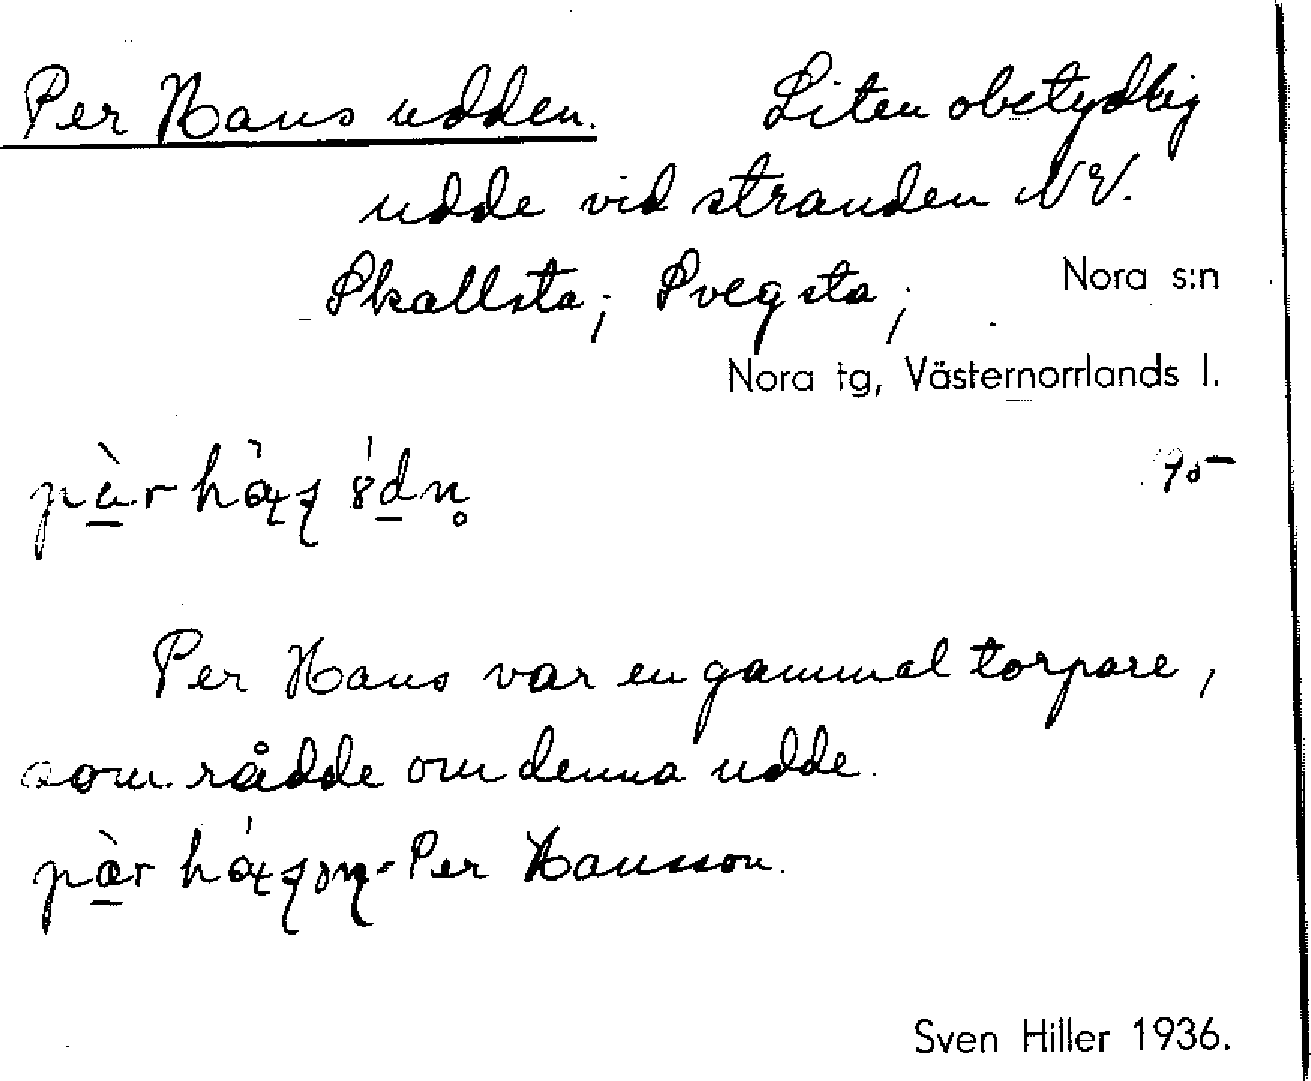 Per Hans udden. Liten obetydlig
udde vid stranden NV.
Skallsta; Svegsta; Nora s:n
Nora tg, Västernorrlands l.
95
Per Hans var en gammal torpare,
som rådde om denna udde.
Per Hansson.
Sven Hiller 1936.